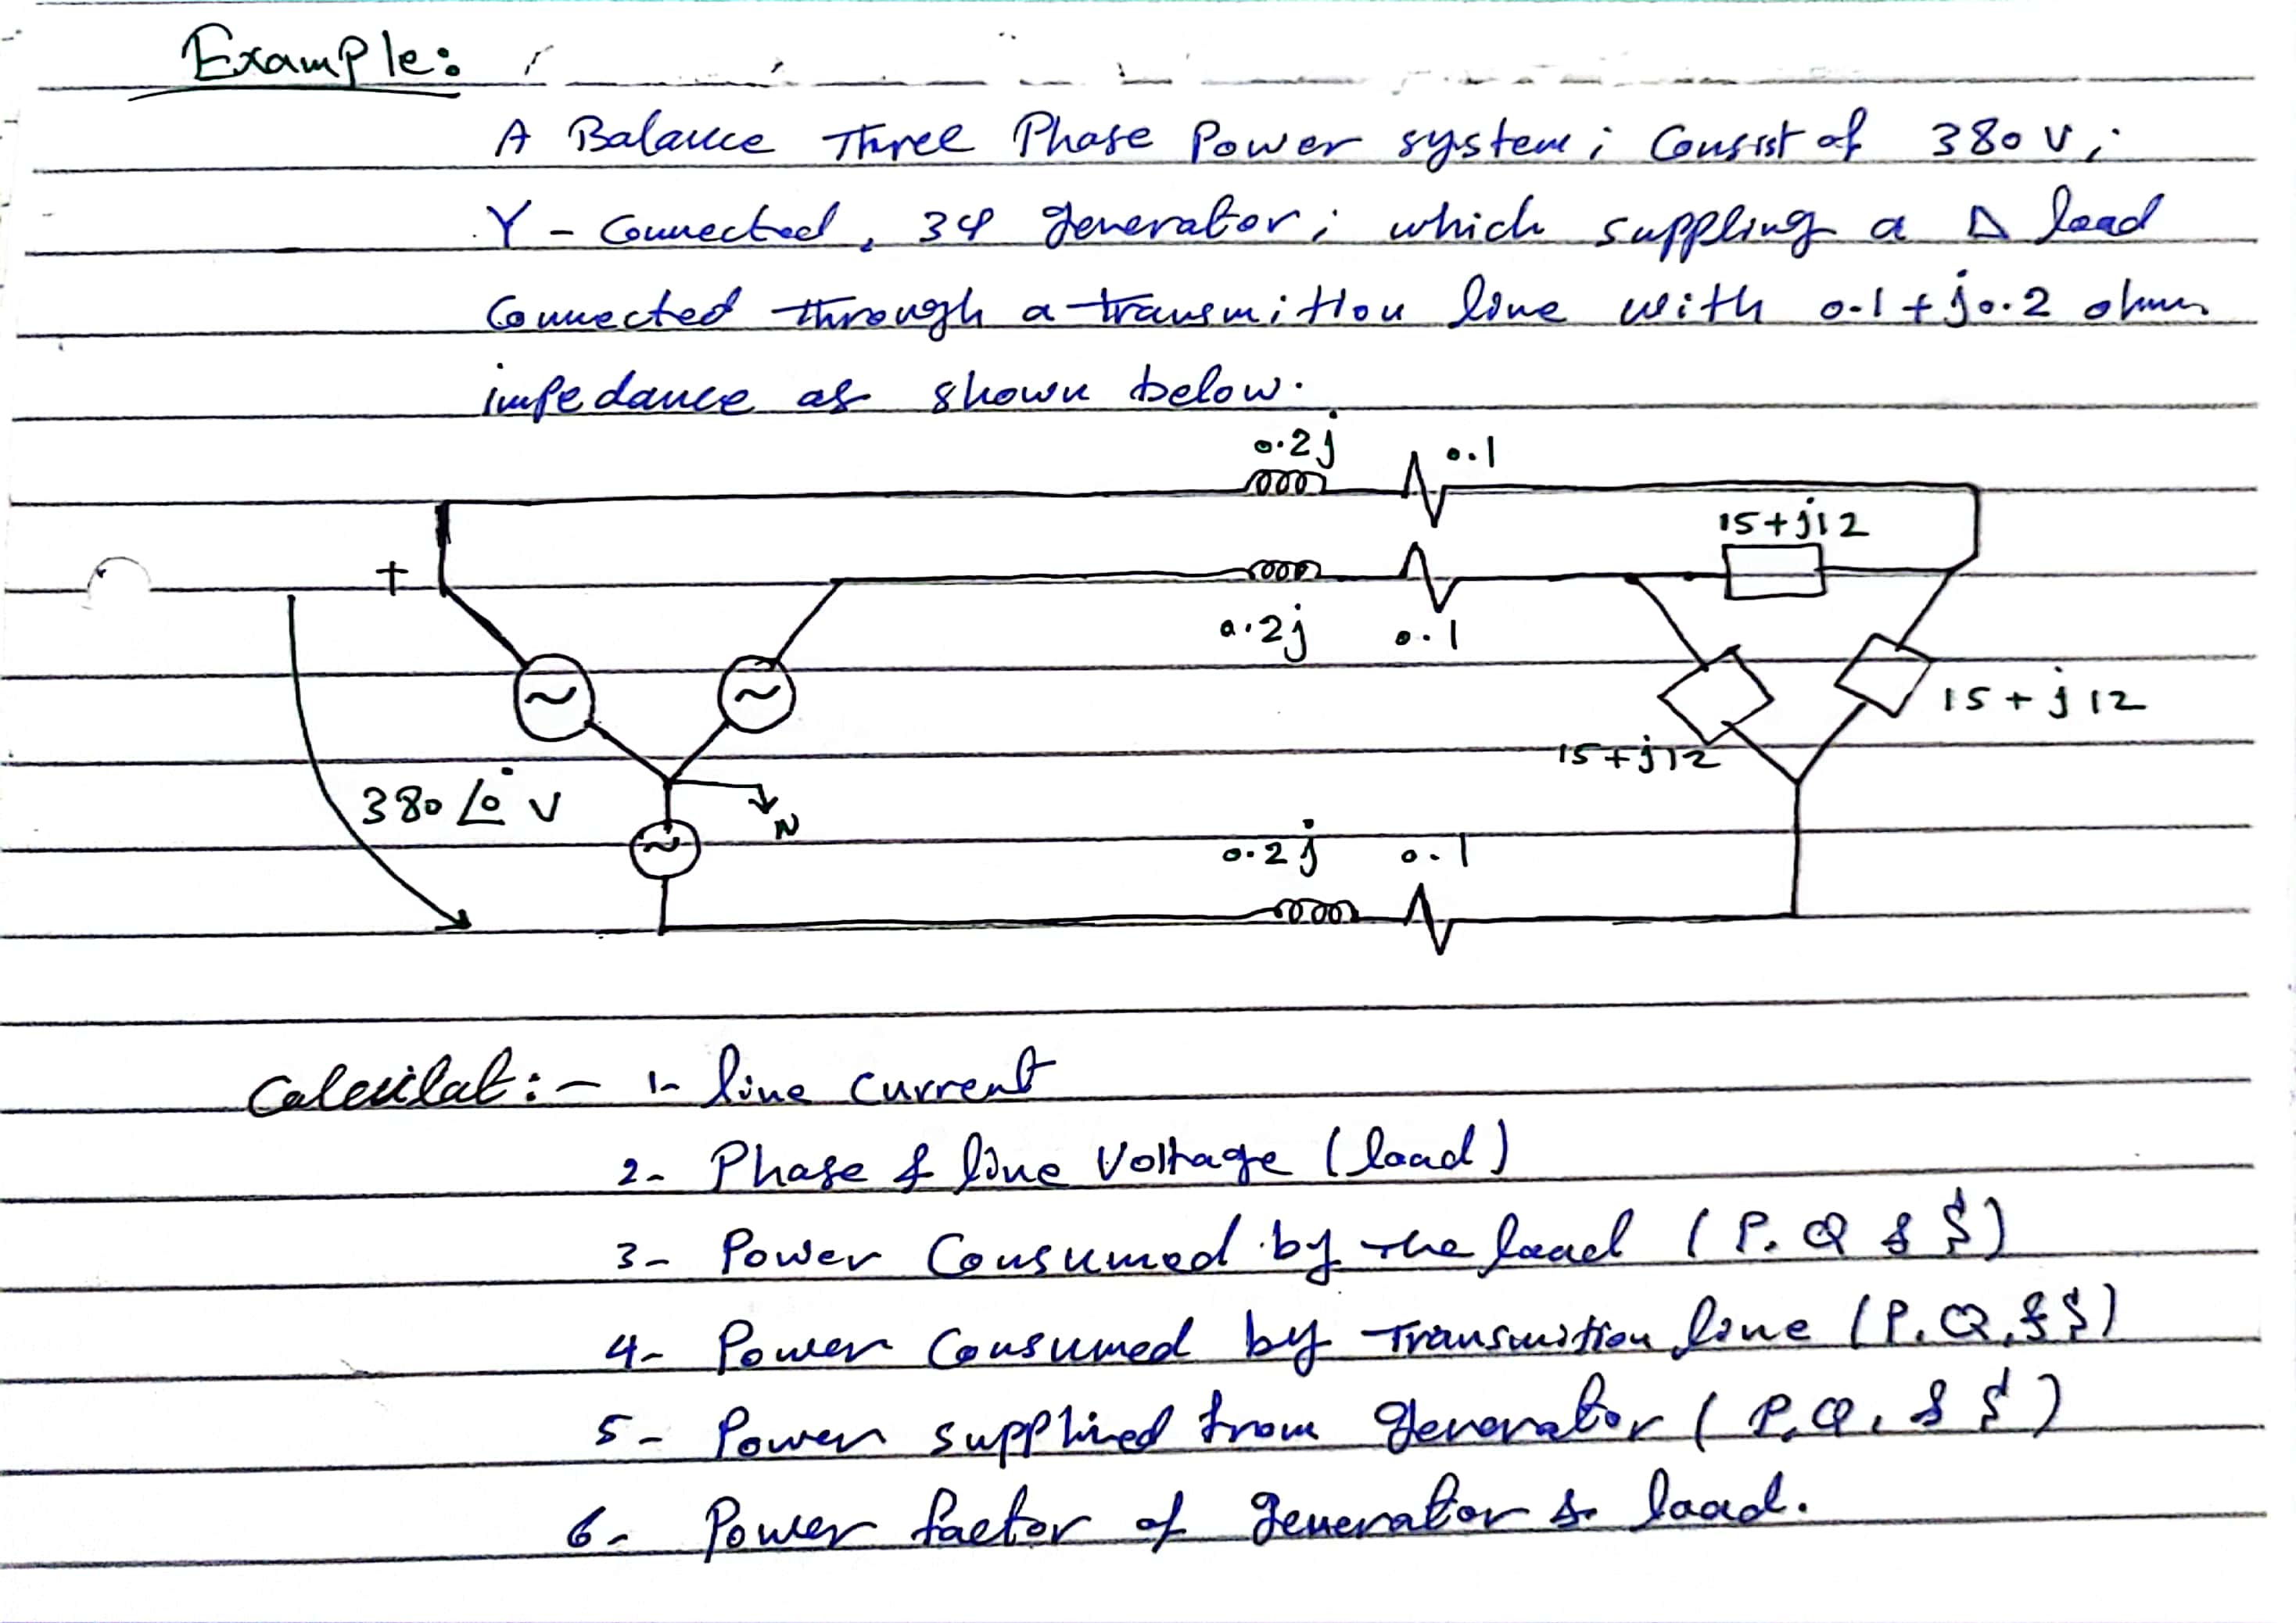 Example:
A Balance Three Phase Power system; Consist of 380 V;
Y - Connected, 3φ generator; which suppling a Δ load
Connected through a transmition line with 0.1 + j0.2 ohm
impedance as shown below.
0.2j 0.1
15+j12
+
0.2j 0.1
15 + j12
15+j12
380 ∠0° V
N
0.2j 0.1
Calculat:- 1- line current
2- Phase & line Voltage (load)
3- Power Consumed by the load (P. Q & S)
4- Power Consumed by Transmition line (P. Q, & S)
5- Power supplied from generator (P, Q, & S)
6- Power factor of generator & load.